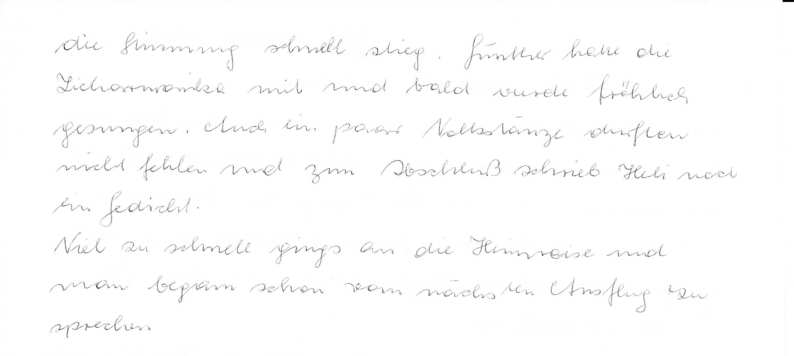 die Stimmung schnell stieg. Günther hatte die
Ziehharmonika mit und bald wurde fröhlich
gesungen. Auch ein paar Volkstänze durften
nicht fehlen und zum Abschluß schrieb Heli noch
ein Gedicht.
Viel zu schnell gings an die Heimreise und
man begann schon vom nächsten Ausflug zu
sprechen